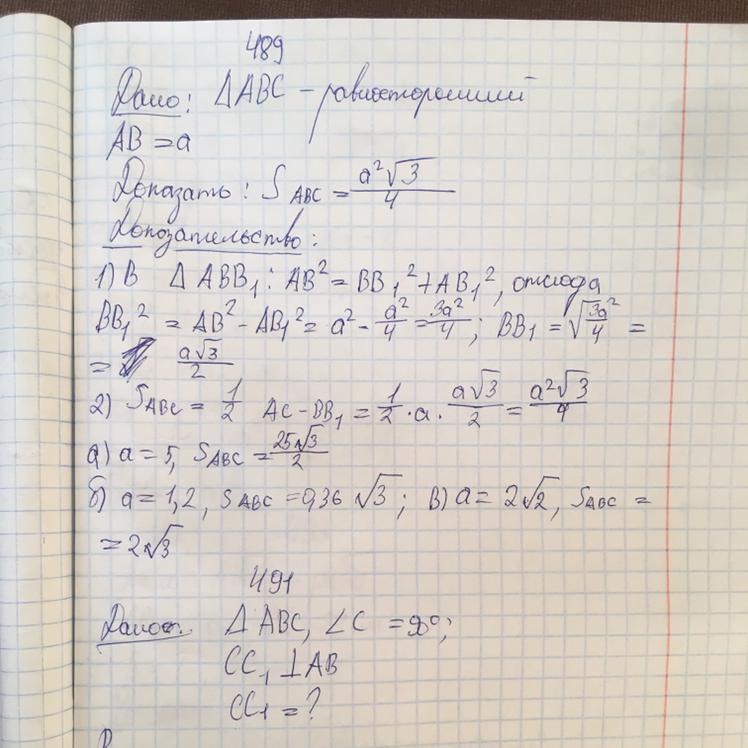 489
Дано: ΔABC – равносторонний
AB = a
Доказать: S ABC = a²√3/4
Докозательство:
1) В Δ ABB₁: AB² = BB₁² + AB₁², отсюда
BB₁² = AB² - AB₁² = a² - a²/4 = 3a²/4; BB₁ = √3a²/4 =
= a√3/2
2) S ABC = 1/2 AC - BB₁ = 1/2 · a · a√3/2 = a²√3/4
а) a = 5, S ABC = 25√3/2
б) a = 1,2, S ABC = 0,36 √3; в) a = 2√2, S ABC =
= 2√3
491
Дано: Δ ABC, ∠C = 90°;
CC₁ ⊥ AB
CC₁ = ?